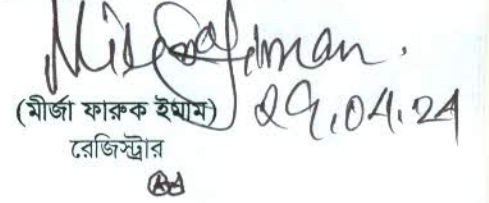 (মীর্জা ফারুক ইমাম) 29.04.24
রেজিস্ট্রার